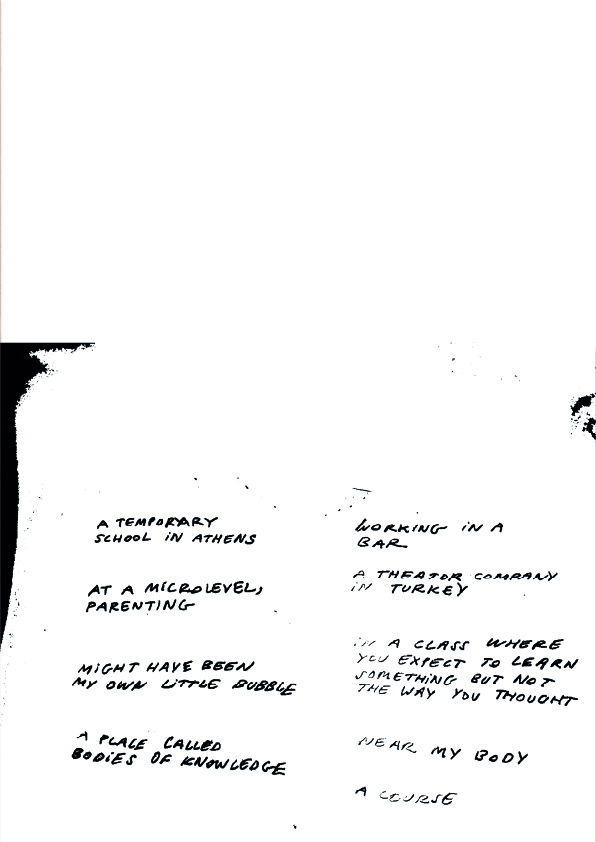 A TEMPORARY
SCHOOL IN ATHENS
AT A MICROLEVEL,
PARENTING
MIGHT HAVE BEEN
MY OWN LITTLE BUBBLE
A PLACE CALLED
BODIES OF KNOWLEDGE
WORKING IN A
BAR
A THEATOR COMPANY
IN TURKEY
IN A CLASS WHERE
YOU EXPECT TO LEARN
SOMETHING BUT NOT
THE WAY YOU THOUGHT
NEAR MY BODY
A COURSE